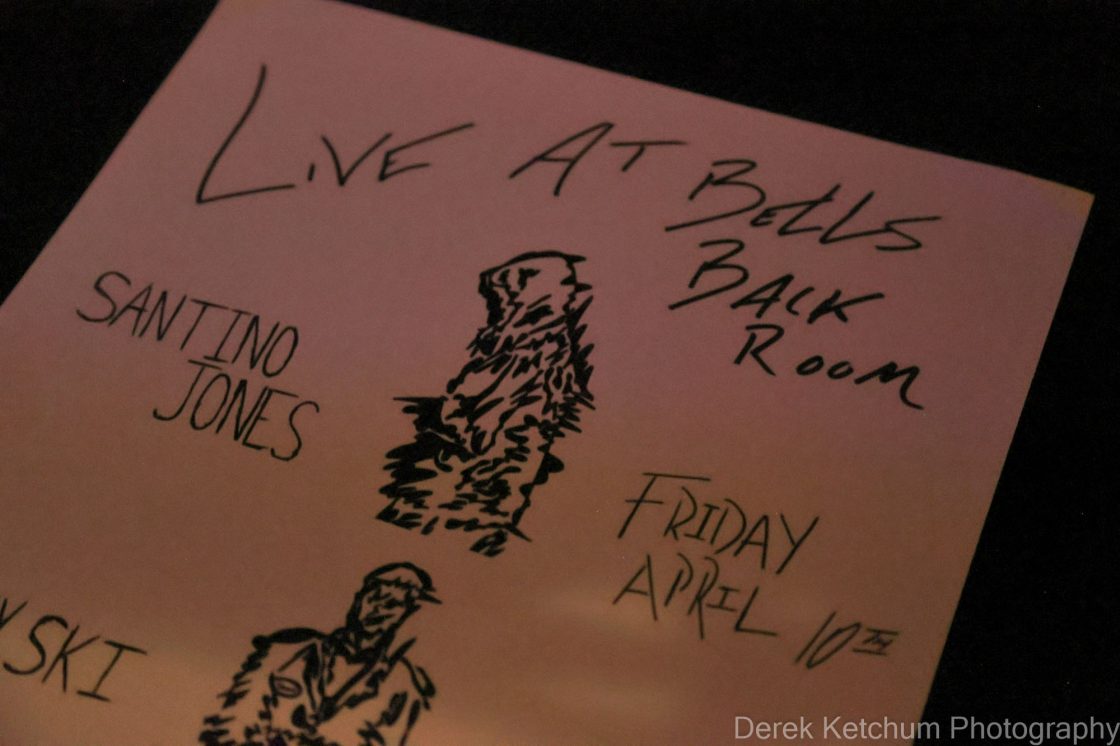 LIVE AT BELLS
BACK
ROOM
SANTINO
JONES
FRIDAY
APRIL 10TH
SKI
Derek Ketchum Photography